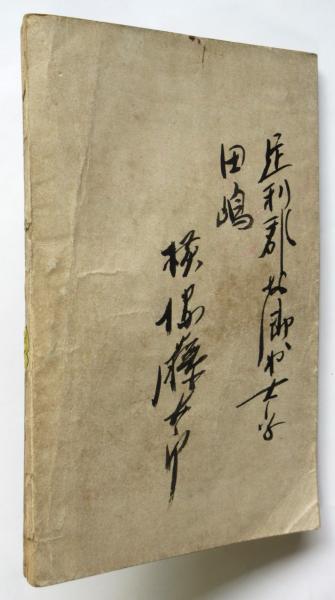 足利郡北郷村大字
田嶋
横藤